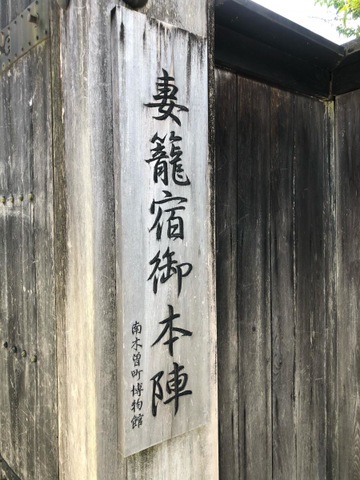 妻籠宿御本陣
南木曽町博物館